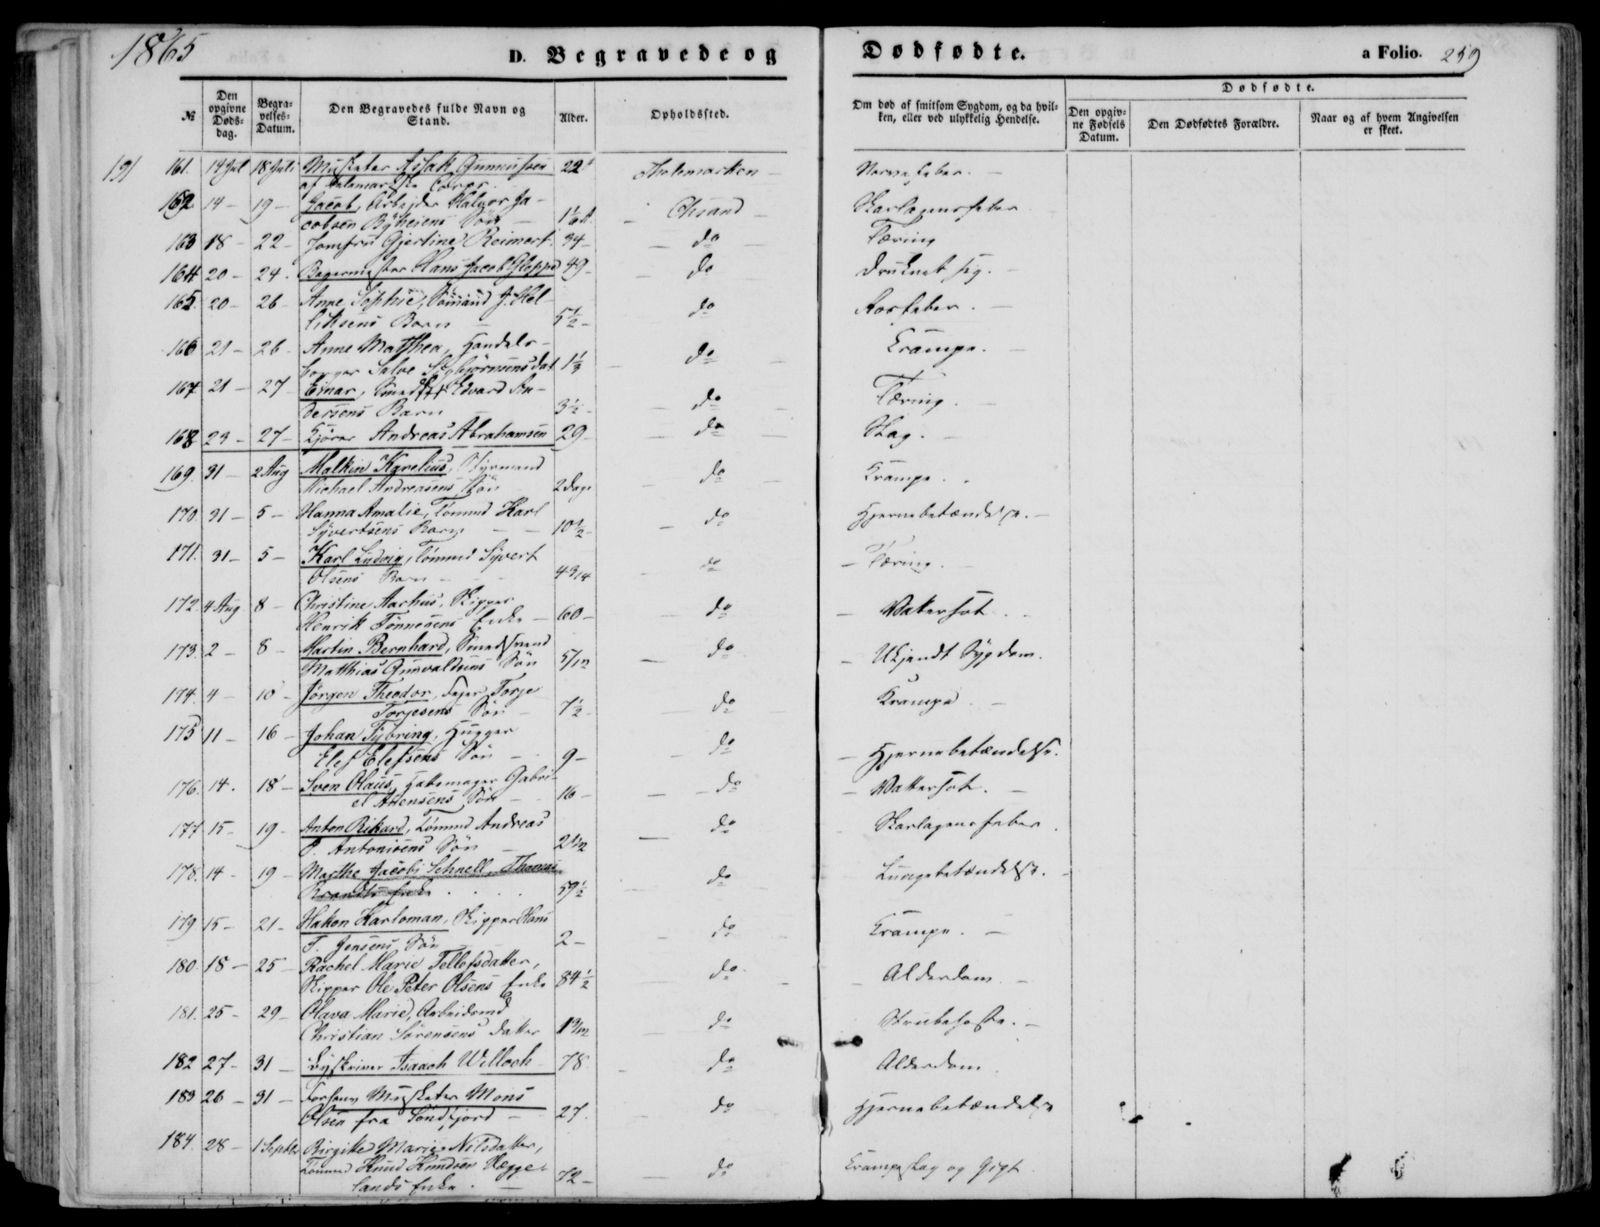 1865
D. Begravede og Dødfødte.
a Folio. 259
№
Den opgivne Døds-dag.
Begra-velses-Datum.
Den Begravedes fulde Navn og Stand.
Alder.
Opholdssted.
Om død af smitsom Sygdom, og da hvil-ken, eller ved ulykkelig Hendelse.
Dødfødte.
Den opgiv-ne Fødsels Datum.
Den Dødfødtes Forældre.
Naar og af hvem Angivelsen er skeet.
191
161. 14 Jul 18 Juli Musketer Aslak Gunnufsen 22
af Telemarkske Corps. Thelemarken Nervefeber.
162 14 19 Jacob, Arbejder Halvor Ja-
cobsen Byheiens Søn Chsand Skarlagensfeber
163 18 22 Jomfru Gjertine Reimert 34 do Tæring
164 20 24 Bagermester Hans Jacob Gloppe 49 do Druknet sig.
165 20 26 Anne Sophie, Sømand J.
Barn 5½ do
166 21 26 Anne Mathea, Handels-
borger Salve datr 1⅓ do Krampe.
167 21 27 Einar, Edvard An-
dersens Barn 3½ do Tæring.
168 23 27 Andreas Abrahamsen 29 do Slag.
169. 31 2 Aug Malkin Karelius, Styrmand
Michael Andreasens Søn 2 Dage do Krampe.
170 31 5 Hanna Amalie, Tømmd Karl
Syvertsens Barn 10½ do Hjernebetændelse.
171. 31 5 Karl Ludvig, Tømmd Syvert
Olsens Barn do Tæring.
172. 4 Aug 8 Christine Aarhus, Skipper
Henrik Tønnesens Enke 60 do Vatersot.
173. 2 8 Martin Bernhard, Smedsvend
Matthias Gunvaldsens Søn 5/12 do Ukjendt Sygdom.
174. 4 10 Jörgen Theodor, Fejer Torje
Torjesens Søn 7½ do Krampe
175 11 16 Johan Tybring, Hugger
Elef Elefsens Søn 9 do Hjernebetændelse.
176. 14. 18 Sven Olaus, Gabri-
el Søn 16 do Vattersot.
177 15 19 Anton Rikard, Tømmd Andreas
P. Antonisens Søn do Skarlagensfeber
178. 14 19 Marthe Jacobi Schnell, Thomas
Brandts Enke 59½ do Lungebetændelse.
179 15 21 Hakon Karloman, Skipper Hans
T. Jensens Søn 2 do Krampe.
180. 18 25 Rachel Marie Tellefsdatter,
Skipper Ole Peter Olsens Enke 84½ do Alderdom.
181. 25 29 Olava Marie, Arbeidsmd
Christian Sørensens Datter do Strubehoste.
182 27 31 Byskriver Isaach Wellock 78. do Alderdom
183 26 31 Musketer Mons
Olsen fra Søndfjord 27. do Hjernebetændelse
184. 28 1 Septbr Birgitte Marie Nilsdatter,
Tømmd Knud Knudsen Hægge-
lands Enke. 72 do Krampeslag og Gigt.